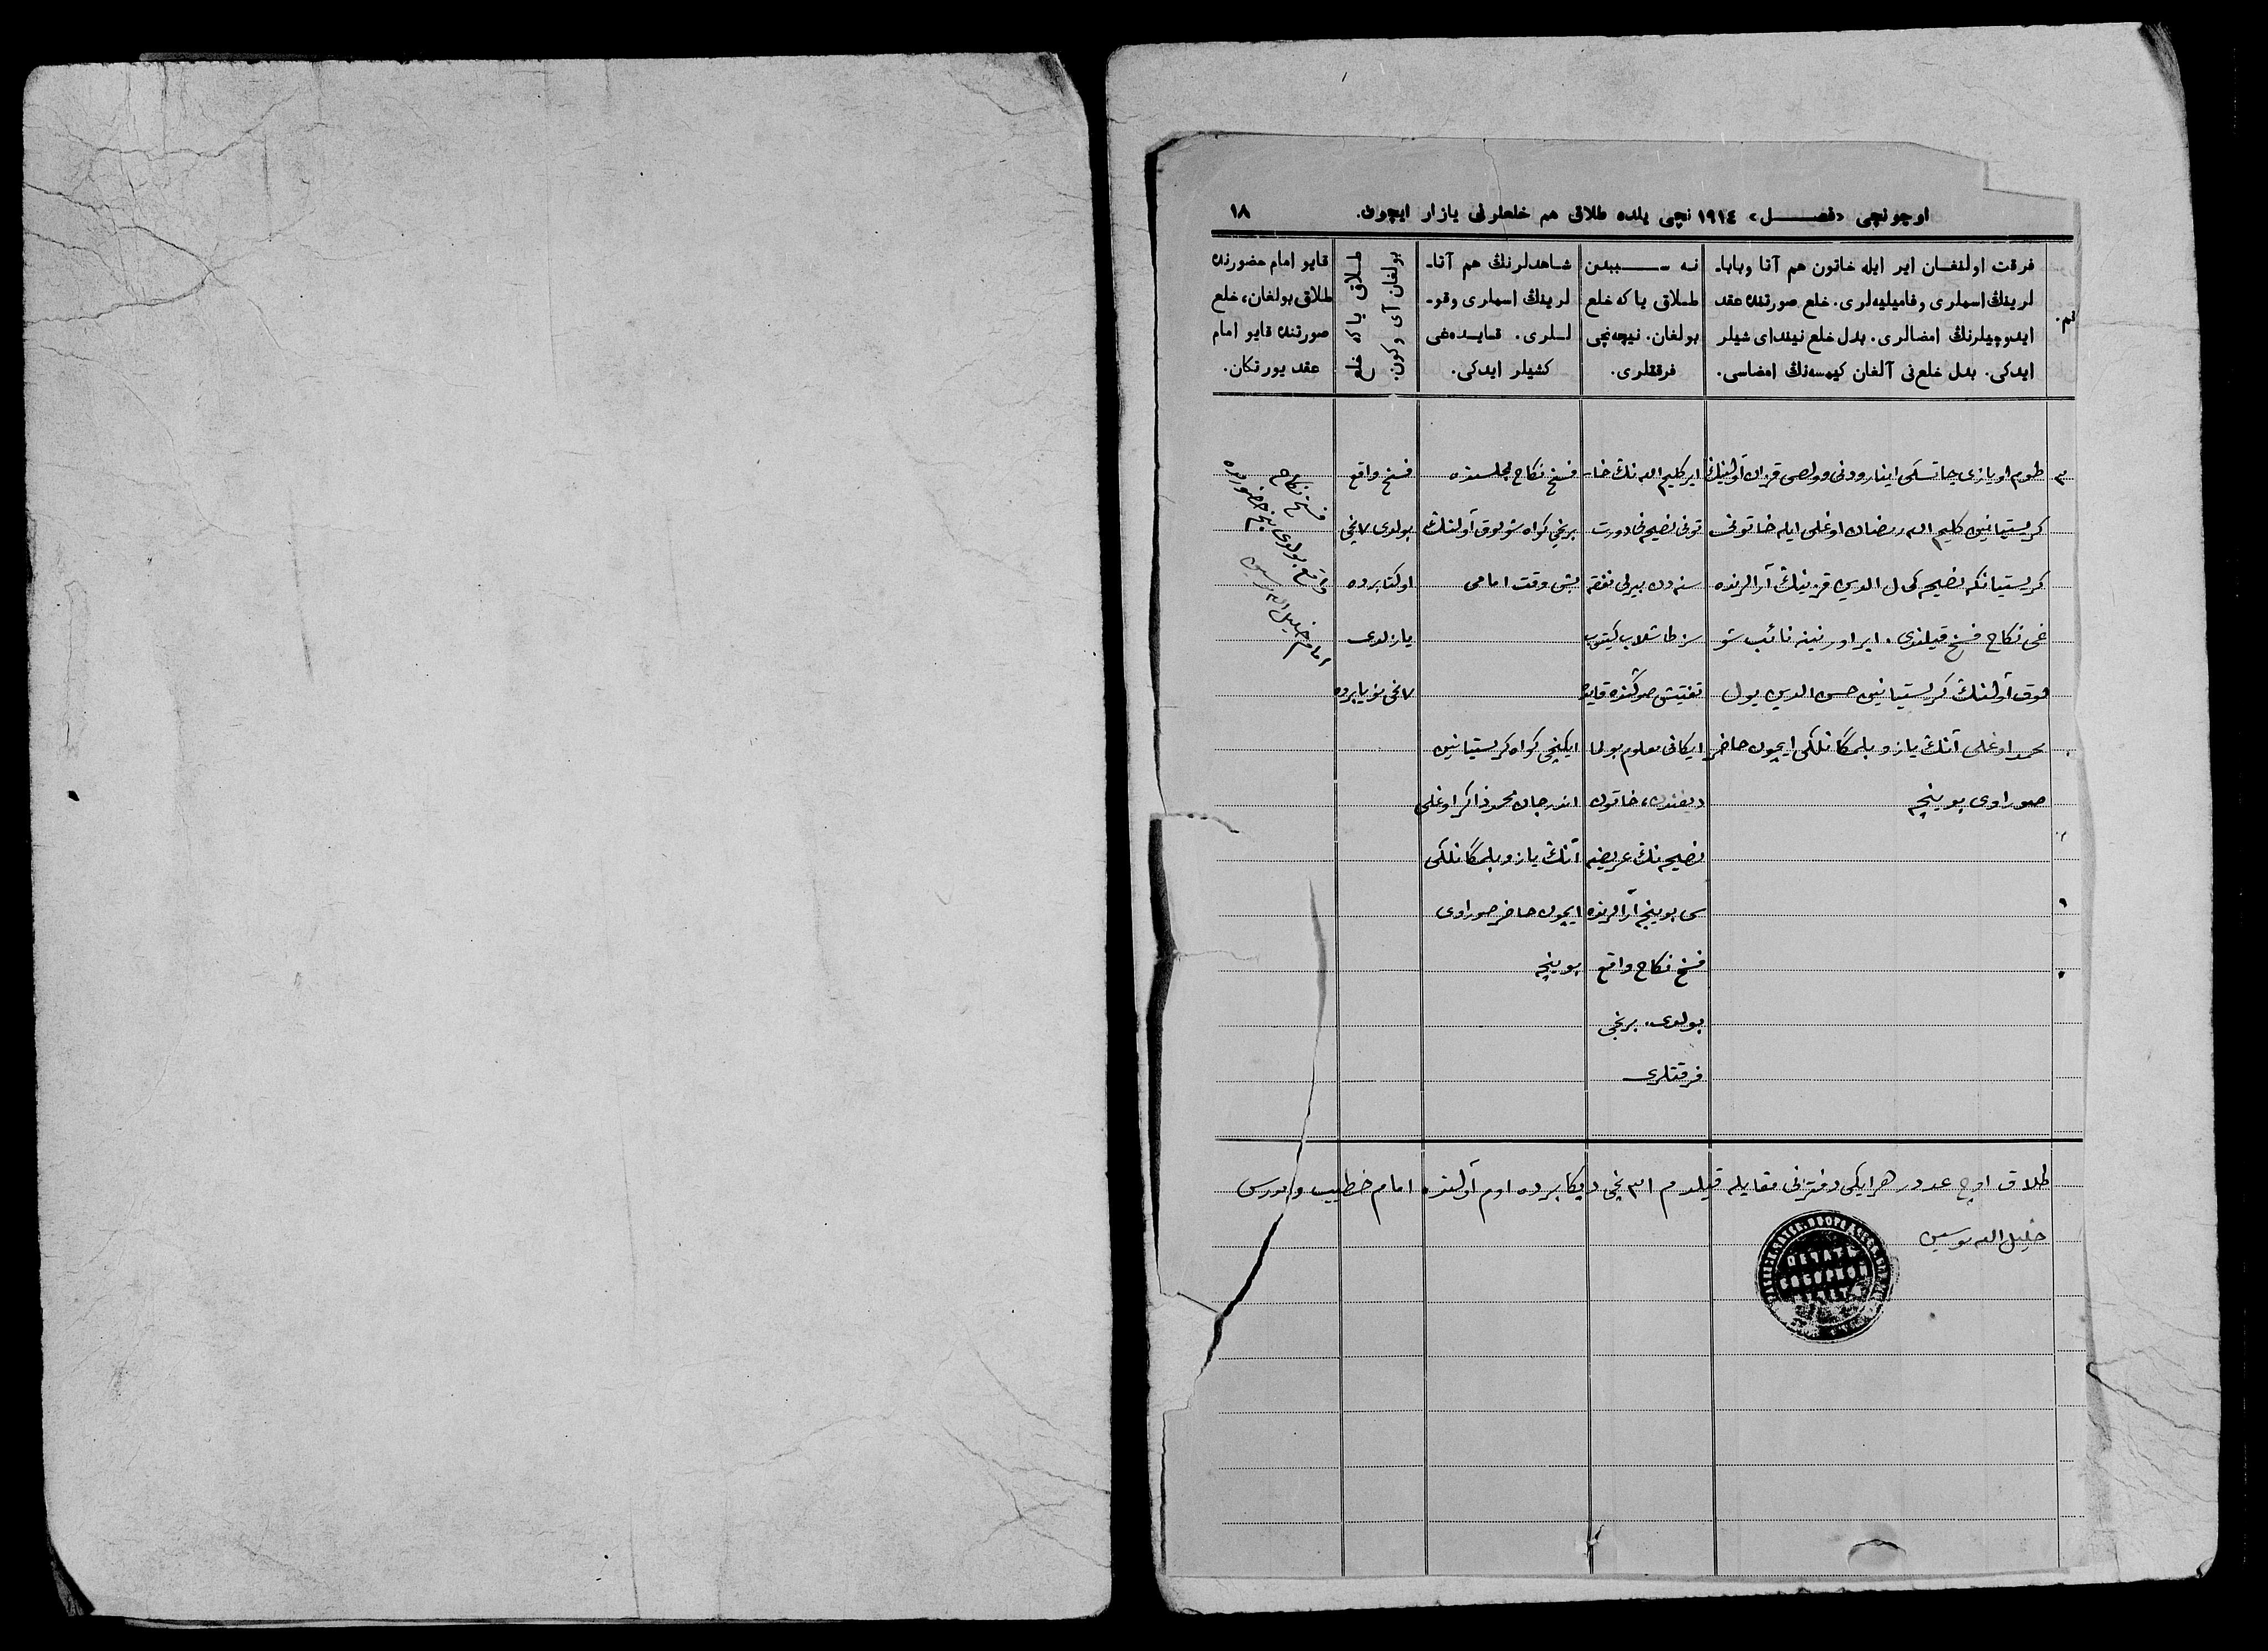 اوچونچی «فصل» ١٩١٤ نچی یلده طلاق هم خلعلرنی یازار ایچون. ١٨
نم.
فرقت اولنغان ایر ایله خاتون هم آتا وبابا-
لرینڭ اسملری وفامیلیه‌لری. خلع صورتنده عقد
ایدوچیلرنڭ امضالری. بدل خلع نینداى شیلر
ایدکی. بدل خلع نی آلغان کیمسه‌نڭ امضاسی.
نه سببدن
طلاق یا که خلع
بولغان. نیچه‌نچی
فرقتلری.
شاهدلرنڭ هم آتا-
لرینڭ اسملری وقو-
للری. قایده‌غی
کشیلر ایدکی.
طلاق یا که خلع
بولغان آی وکون.
قایو امام حضورنده
طلاق بولغان، خلع
صورتنده قایو امام
عقد یورتکان.
٣
کریستیانین کلیم الله رمضان اوغلی ایله خاتونی
کریستیانکه نضیحه کمال الدین قزینڭ آرالرنده
غی نکاح فسخ قیلندی. ایر اورنینه نائب شو
اوغلی آنڭ یازو بلمگانلکی ایچون حاضر
صوراوی بوینچه
ایر کلیم الله نڭ خا-
تونی نضیحه نی دورت
سنه دن بیرلی نفقه
سز طاشلاب کیتوب
تفتیش صوڭنده قایده
ایکانی معلوم بولما
دیغندن، خاتون
نضیحه نڭ عریضه
سی بوینچه آرالرنده
فسخ نکاح واقع
بولدی. برنچی
فرقتلری
فسخ نکاح مجلسنده
برنچی کواه شولوق آولنڭ
بش وقت امامی
ایکنچی کواه کریستیانین
محمد ذاکر اوغلی
آنڭ یازو بلمگانلکی
ایچون حاضر صوراوی
بوینچه
فسخ واقع
بولدی ٧نچی
اوکتابرده
یازلدی
٧نچی نویابرده
فسخ نکاح
واقع بولدی
امام خلیل الله
طلاق اوچ عدد در هر ایکی دفترنی مقابله قیلدم ٣١نچی دیکابرده اوم آولنده امام خطیب و مدرس
خلیل الله
ПЕЧАТЬ
СОБОРНОЙ